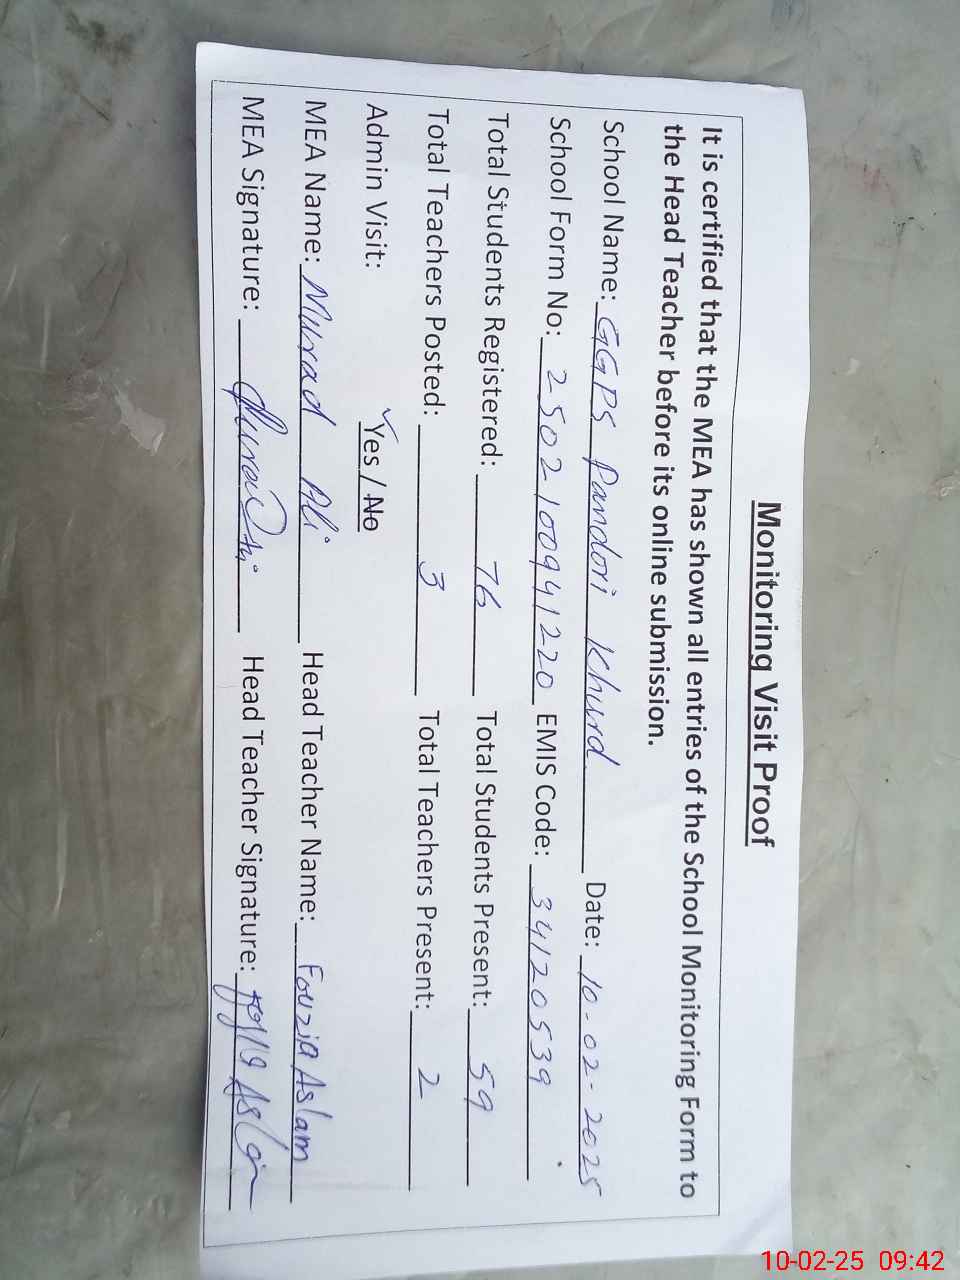 Monitoring Visit Proof
It is certified that the MEA has shown all entries of the School Monitoring Form to
the Head Teacher before its online submission.
School Name: GGPS Pandori Khurd Date: 10-02-2025
School Form No: 2502100941220 EMIS Code: 34120539
Total Students Registered: 76 Total Students Present: 59
Total Teachers Posted: 3 Total Teachers Present: 2
Admin Visit: Yes / No
MEA Name: Murad Ali Head Teacher Name: Fouzia Aslam
MEA Signature: Murad Ali Head Teacher Signature:
10-02-25 09:42